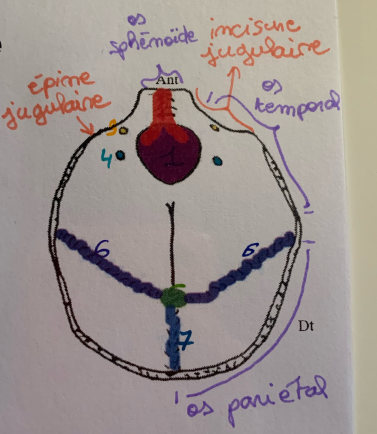 os
sphénoïde
incisure
jugulaire
Ant
épine
jugulaire
os
temporal
3
4
1
6
6
5
7
Dt
os pariétal